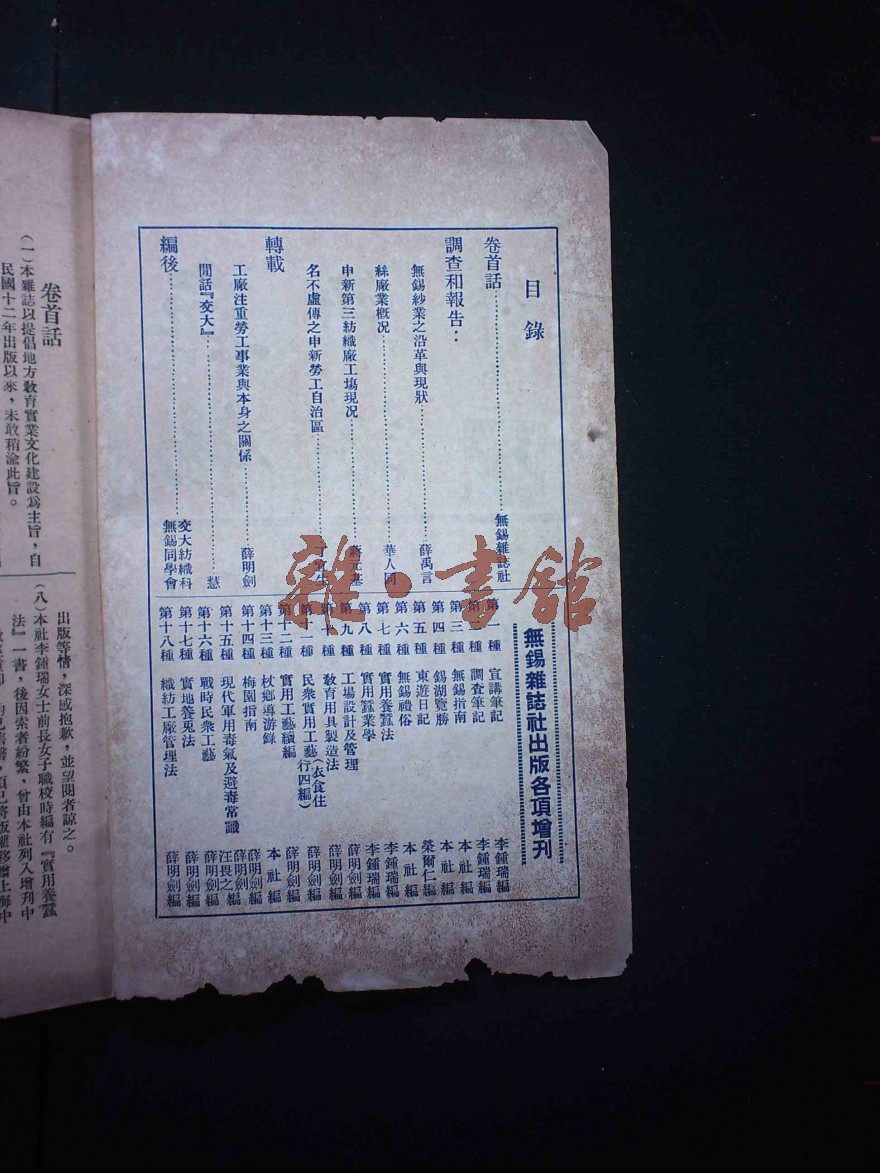 目錄
卷首話……無錫雜誌社
調查和報告：
無錫紗業之沿革與現狀……薛禹言
絲廠業概況……華人同
申新第三紡織廠工場現況……蔣元基
名不虛傳之申新勞工自治區……
轉載
工廠注重勞工事業與本身之關係……薛明劍
閒話『交大』……慧
編後……交大紡織科無錫同學會
無錫雜誌社出版各項增刊
第一種 宣講筆記 李鍾瑞編
第二種 調查筆記 李鍾瑞編
第三種 無錫指南 本社編
第四種 錫湖覽勝 本社編
第五種 東遊日記 榮爾仁編
第六種 無錫禮俗 本社編
第七種 實用養蠶法 李鍾瑞編
第八種 實用蠶業學 李鍾瑞編
第九種 工場設計及管理 薛明劍編
第十種 教育用具製造法 薛明劍編
第十一種 民衆實用工藝(衣食住行四編) 薛明劍編
第十二種 實用工藝續編 薛明劍編
第十三種 杖鄉導游錄 本社編
第十四種 梅園指南 薛明劍編
第十五種 現代軍用毒氣及避毒常識 薛明劍 汪畏之編
第十六種 戰時民衆工藝 薛明劍編
第十七種 實地養兎法 薛明劍編
第十八種 織紡工廠管理法 薛明劍編
雜·書館
卷首話
(一)本雜誌以提倡地方教育實業文化建設爲主旨，自
民國十二年出版以來，未敢稍渝此旨。
出版等情，深感抱歉，並望閱者諒之。
(八)本社李鍾瑞女士前長女子職校時編有『實用養蠶
法』一書，後因索者紛繁，曾由本社列入增刊中